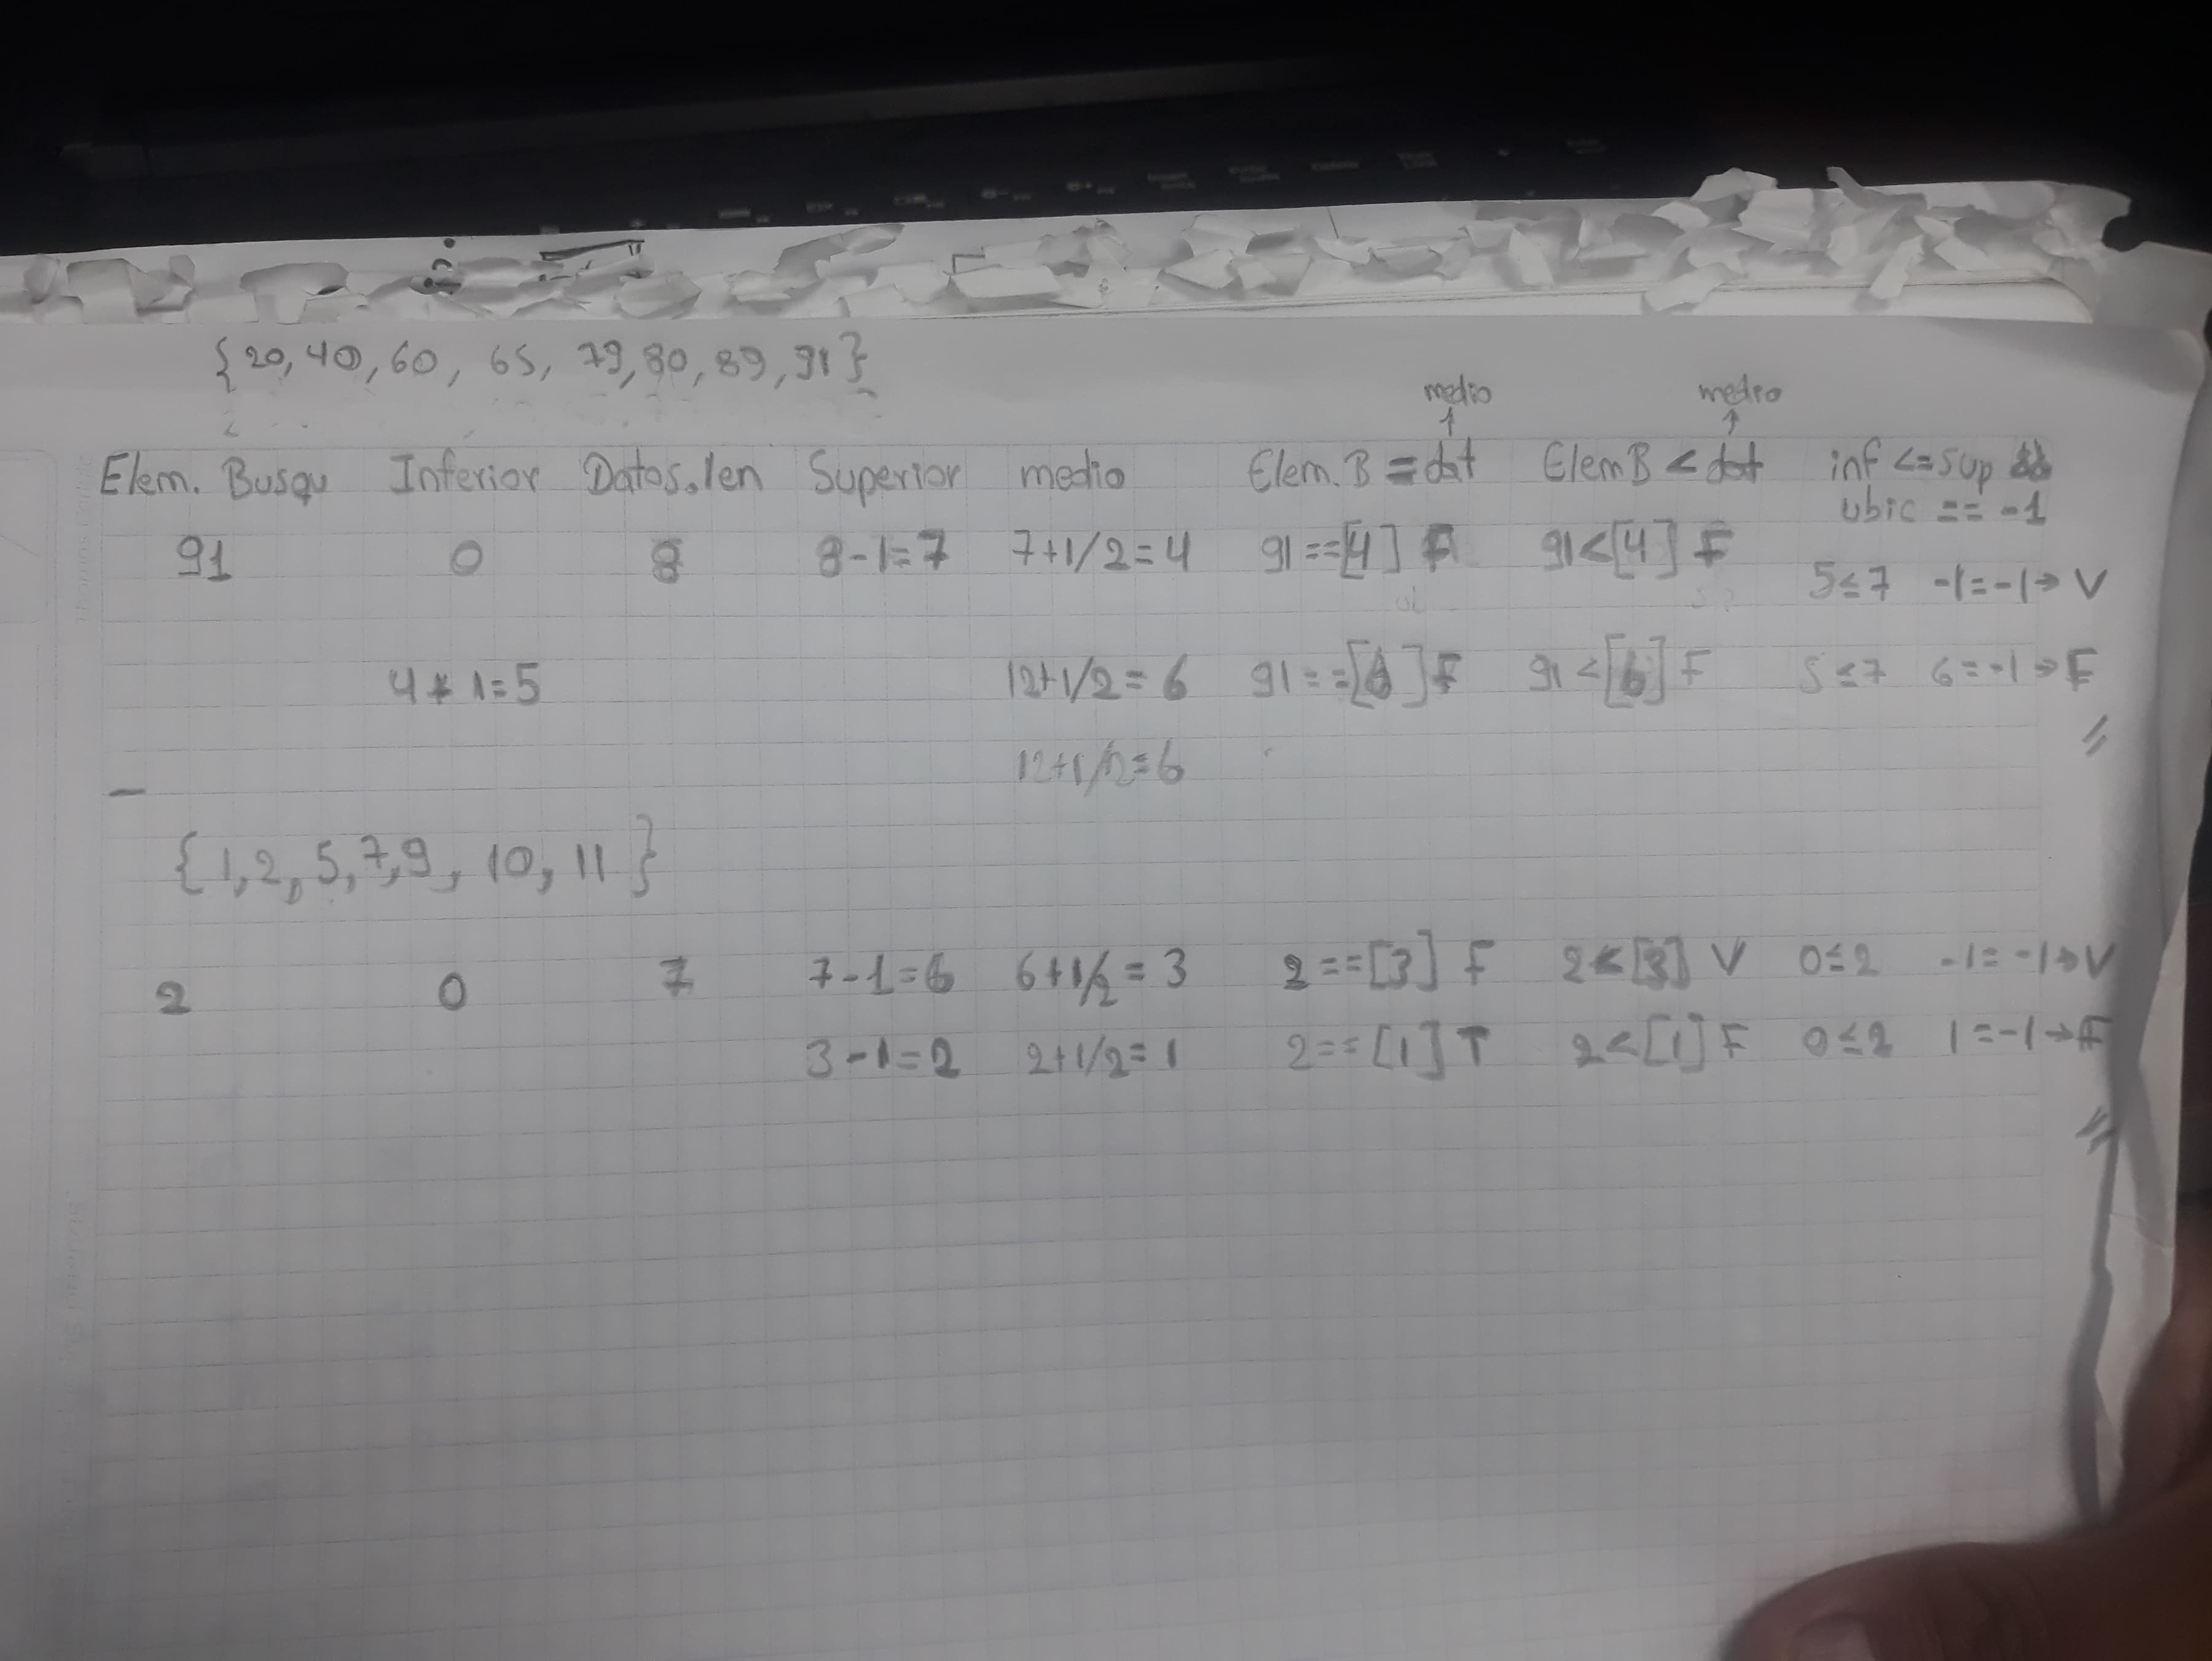 {20, 40, 60, 65, 79, 80, 89, 91}
medio medio
Elem. Busqu Inferior Datos.len Superior medio Elem. B = dat ElemB < dat inf <= sup &&
ubic == -1
91 0 8 8-1=7 7+1/2=4 91==[4] F 91<[4] F
5≤7 -1=-1→V
4+1=5 12+1/2=6 91==[6] F 91<[6] F 5≤7 6=-1→F
12+1/2=6
{1,2,5,7,9, 10, 11}
2 0 7 7-1=6 6+1/2=3 2==[3] F 2<[3] V 0≤2 -1=-1→V
3-1=2 2+1/2=1 2==[1] T 2<[1] F 0≤2 1=-1→F